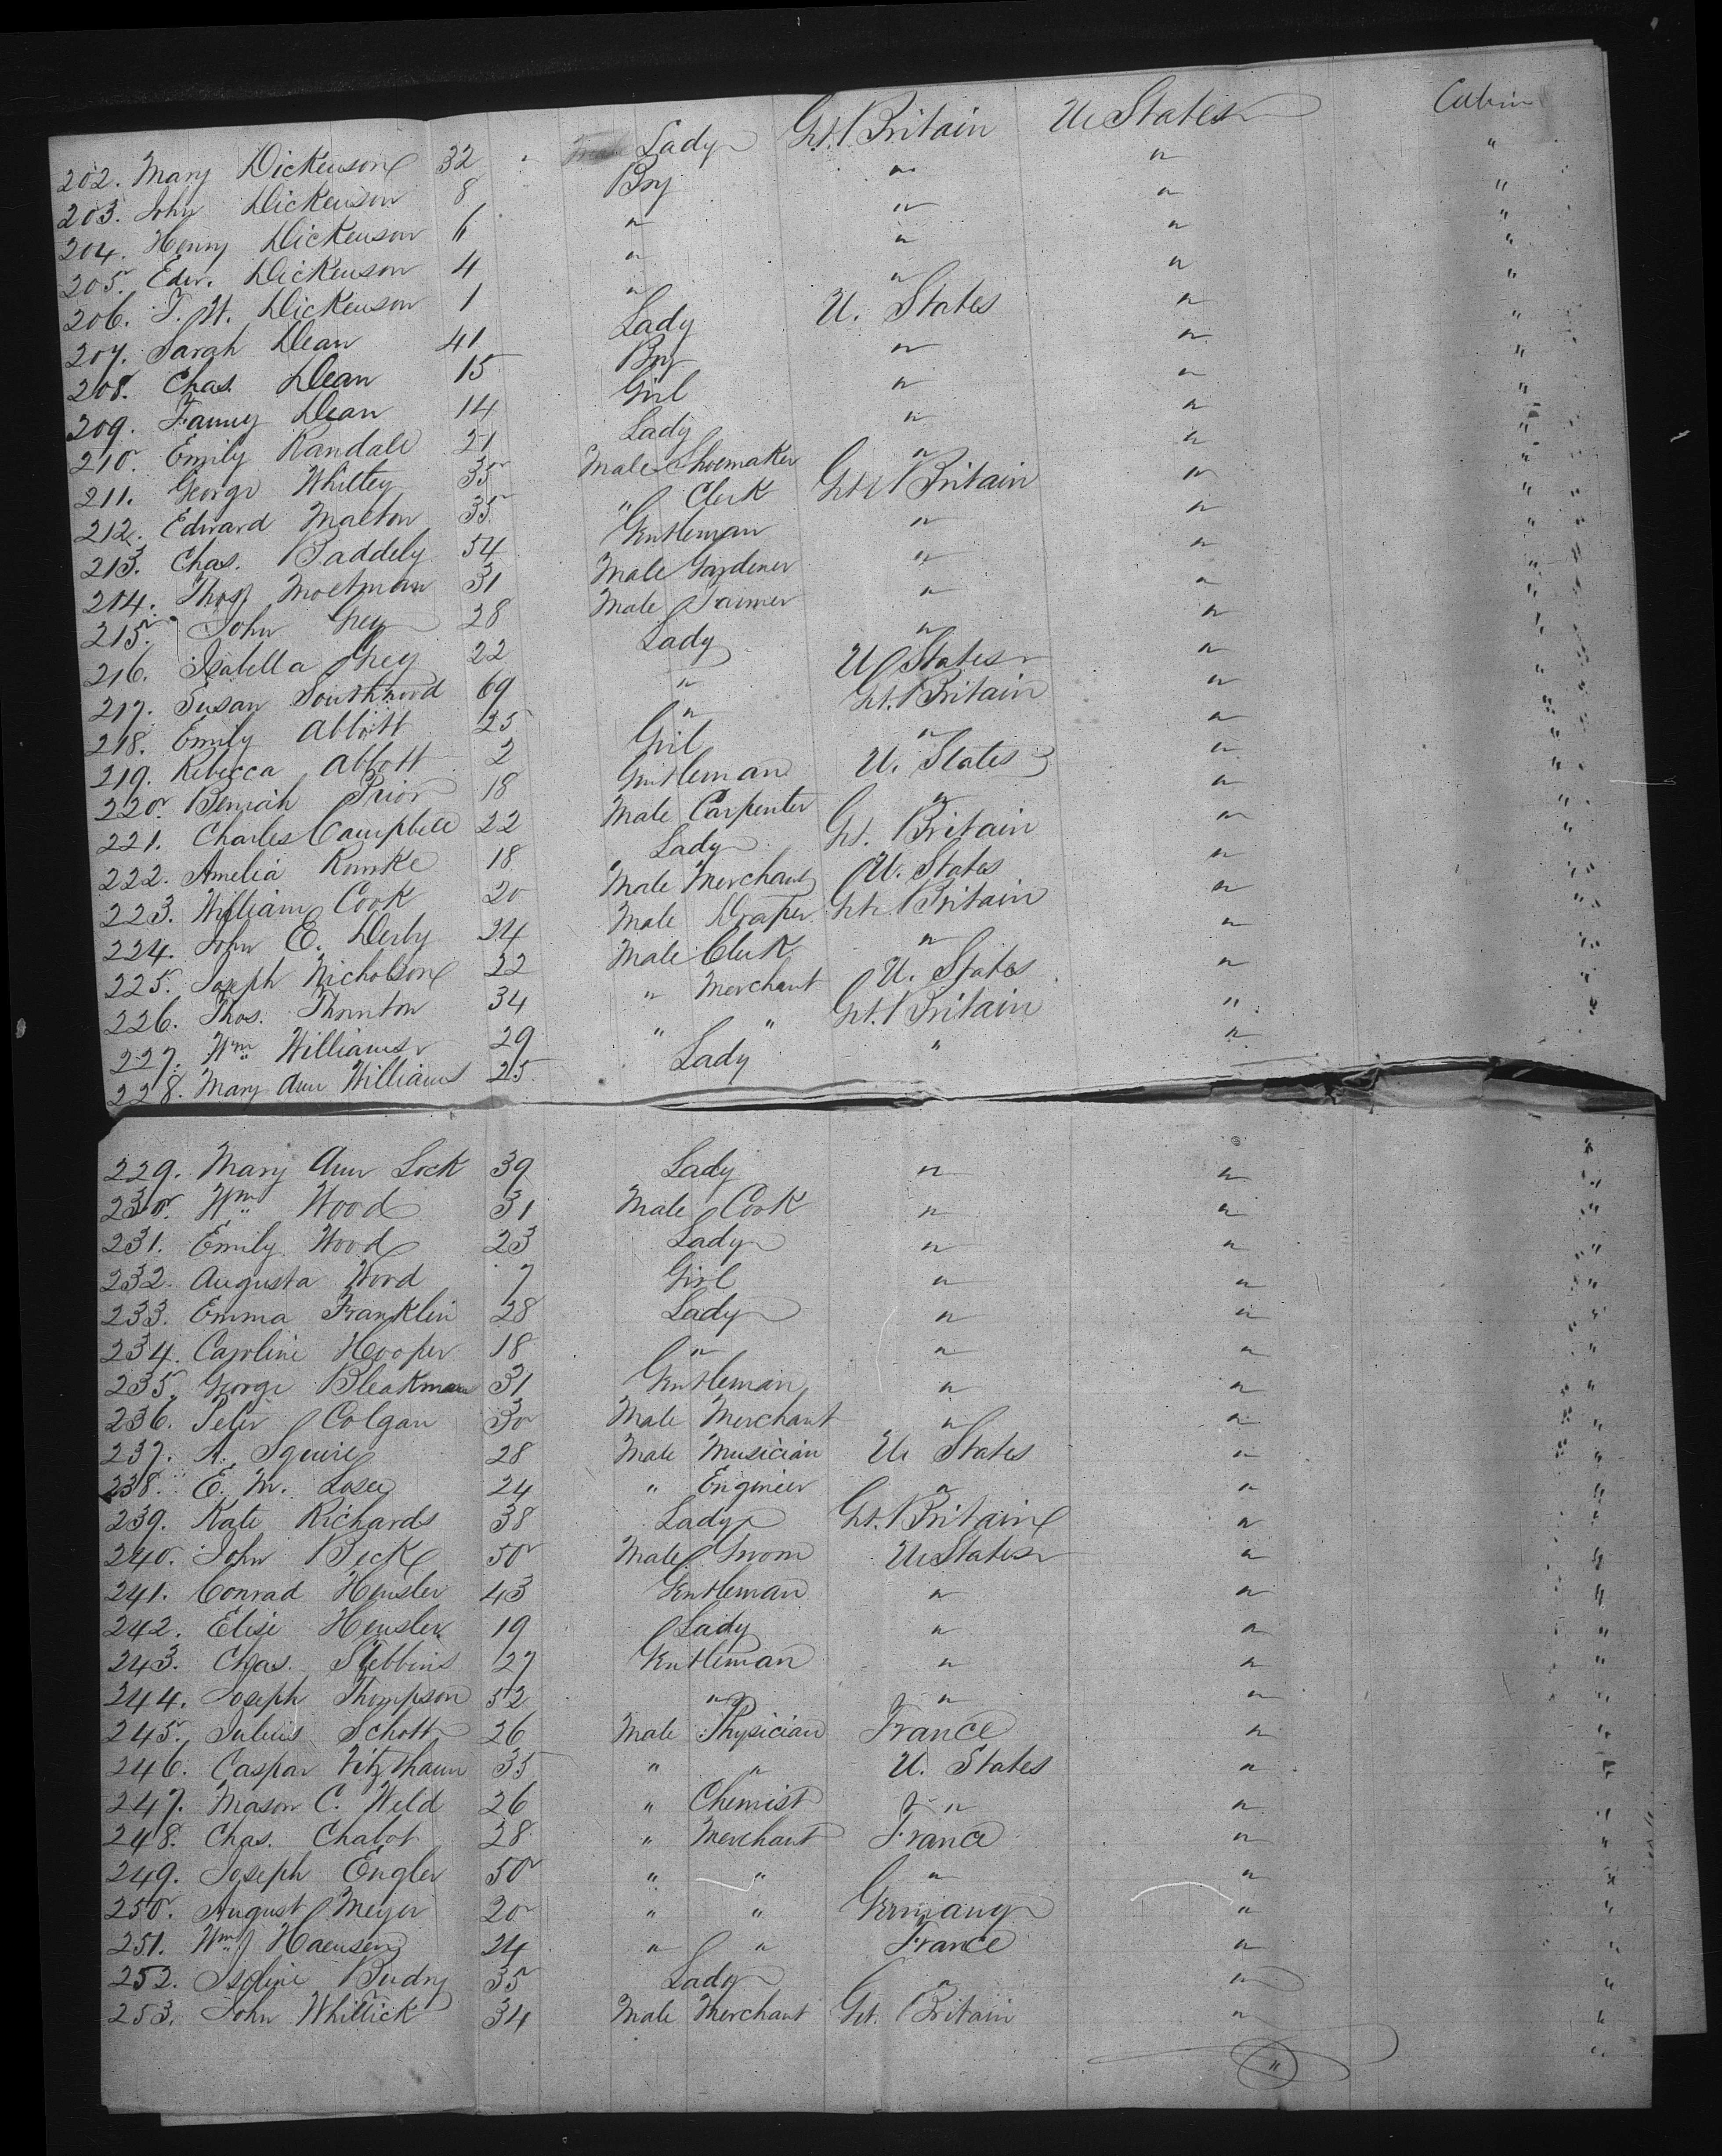 202. Mary Dickenson 32 " Lady Gt. Britain U. States Cabin
203. John Dickenson 8 Boy " " "
204. Henry Dickenson 6 " " " "
205. Edw. Dickenson 4 " " " "
206. T. W. Dickenson 1 " " " "
207. Sarah Dean 41 Lady U. States " "
208. Chas. Dean 15 Boy " " "
209. Fanny Dean 14 Girl " " "
210. Emily Randall 21 Lady " " "
211. George Whittey 35 Male Shoemaker " " "
212. Edward Malton 35 " Clerk Gt. Britain " "
213. Chas. Baddely 54 Gentleman " " "
214. Thos. Moetman 31 Male Gardener " " "
215. John Grey 28 Male Farmer " " "
216. Isabella Grey 22 Lady " " "
217. Susan Southwood 69 " U States " "
218. Emily Abbott 25 " Gt. Britain " "
219. Rebecca Abbott 2 Girl " " "
220. Beniah Prior 18 Gentleman U. States " "
221. Charles Campbell 22 Male Carpenter " " "
222. Amelia 18 Lady Gt. Britain " "
223. William Cook 20 Male Merchant U. States " "
224. John E. Derby 24 Male Draper Gt. Britain " "
225. Joseph Nicholson 22 Male Clerk " " "
226. Thos. Thornton 34 " Merchant U. States " "
227. Wm. Williams 29 " " Gt. Britain " "
228. Mary Ann Williams 25 Lady " " "
229. Mary Ann Lock 39 Lady " " "
230. Wm. Wood 31 Male Cook " " "
231. Emily Wood 23 Lady " " "
232. Augusta Wood 7 Girl " " "
233. Emma Franklin 28 Lady " " "
234. Caroline Hooper 18 " " " "
235. George Bleakman 31 Gentleman " " "
236. Peter Colgan 30 Male Merchant " " "
237. A. Squire 28 Male Musician U. States " "
238. E. M. Losee 24 " Engineer " " "
239. Kate Richards 38 Lady Gt. Britain " "
240. John Beck 50 Male Groom U. States " "
241. Conrad Hensler 43 Gentleman " " "
242. Elise Hensler 19 Lady " " "
243. Chas. Stebbins 27 Gentleman " " "
244. Joseph Thompson 52 " " " "
245. Julius Schott 26 Male Physician France " "
246. Caspar 35 " " U. States " "
247. Mason C. Weld 26 " Chemist " " "
248. Chas. Chabot 28 " Merchant France " "
249. Joseph Engler 50 " " " " "
250. August Meyer 20 " " Germany " "
251. Wm. Haensen 24 " " France " "
252. Isoline 35 Lady " " "
253. John Whittick 34 Male Merchant Gt. Britain " "
"